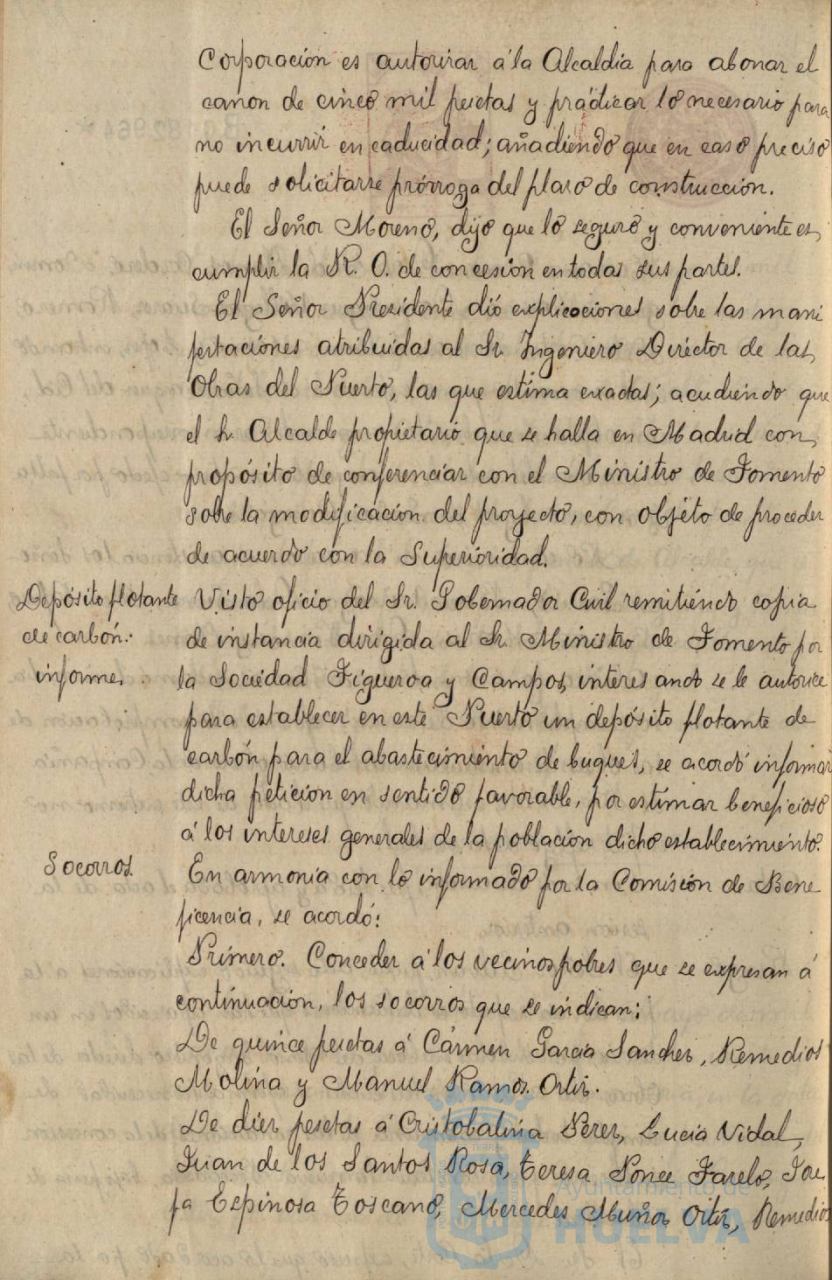 Corporación es autorizar á la Alcaldía para abonar el
canon de cinco mil pesetas y practicar lo necesario para
no incurrir en caducidad; añadiendo que en caso preciso
puede solicitarse prórroga del plazo de construcción.
El Señor Moreno, dijo que lo seguro y conveniente es
cumplir la R. O. de concesión en todas sus partes.
El Señor Presidente dió explicaciones sobre las mani
festaciones atribuidas al Sr. Ingeniero Director de las
Obras del Puerto, las que estima exactas; acudiendo que
el Sr. Alcalde propietario que se halla en Madrid con
propósito de conferenciar con el Ministro de Fomento
sobre la modificación del proyecto, con objeto de proceder
de acuerdo con la Superioridad.
Depósito flotante
de carbón.
informe.
Visto oficio del Sr. Gobernador Civil remitiendo copia
de instancia dirigida al Sr. Ministro de Fomento por
la Sociedad Figueroa y Campos, interesando se le autorice
para establecer en este Puerto un depósito flotante de
carbón para el abastecimiento de buques, se acordó informar
dicha petición en sentido favorable, por estimar beneficioso
á los intereses generales de la población dicho establecimiento.
Socorros.
En armonia con lo informado por la Comisión de Bene
ficencia, se acordó:
Primero. Conceder á los vecinos pobres que se expresan á
continuación, los socorros que se indican;
De quince pesetas á Cármen García Sanchez, Remedios
Molina y Manuel Ramos Ortiz.
De diez pesetas á Cristobalina Perez, Lucía Vidal,
Juan de los Santos Rosa, Teresa Ponce Farelo, Jose
fa Espinosa Toscano, Mercedes Muñoz Ortiz, Remedios
Ayuntamiento de
HUELVA